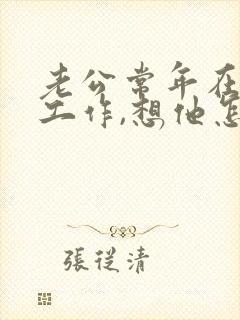 老公常年在
工作,想他怎
張從清